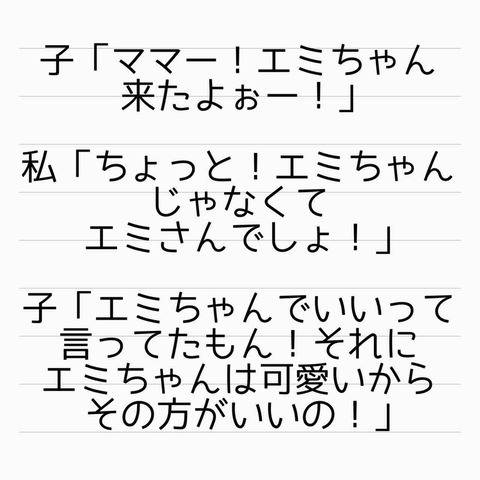 子「ママー！エミちゃん
来たよぉー！」
私「ちょっと！エミちゃん
じゃなくて
エミさんでしょ！」
子「エミちゃんでいいって
言ってたもん！それに
エミちゃんは可愛いから
その方がいいの！」